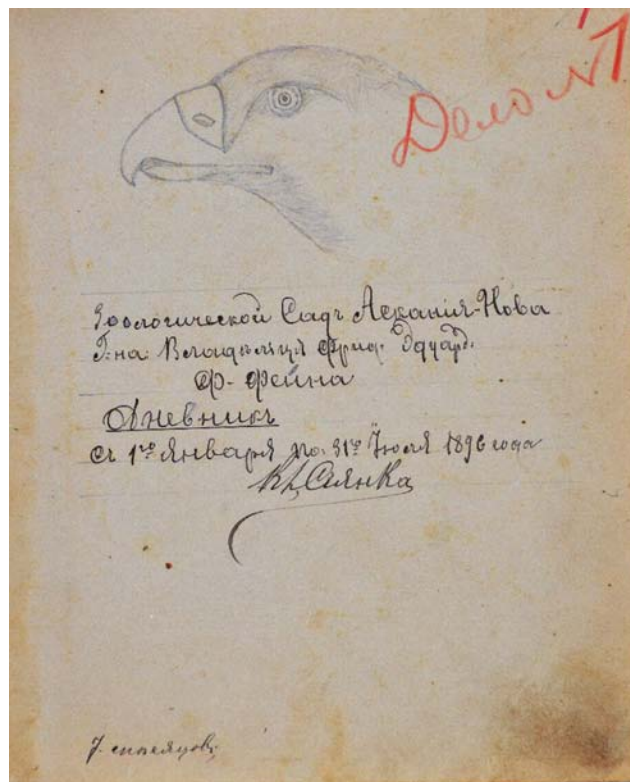 Дело №1
Зоологической Садъ Асканія-Нова
Г-на Владѣльца Фрид. Эдуард.
Ф-Фейна
Дневникъ
съ 1го Января по 31е Іюля 1896 года
К. Сіянко
7 месяцовъ